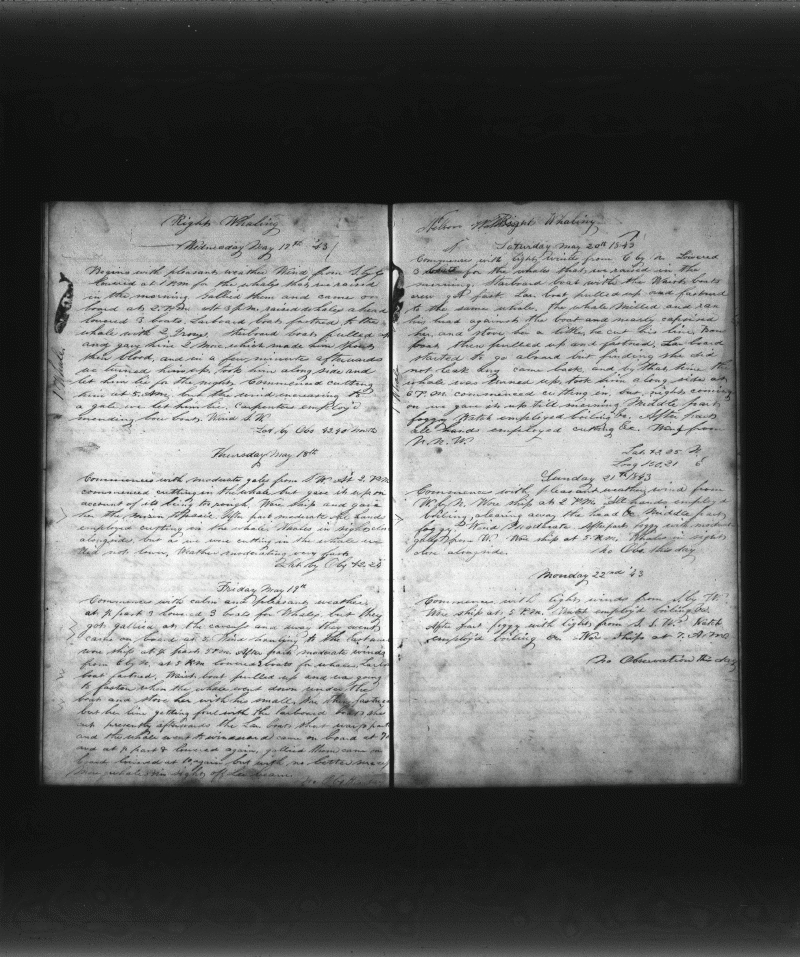 Right Whaling
Wednesday May 17th '43
Begins with pleasant weather Wind from S. by E
lowered at 1 P.M. for the whales that we raised
in the morning Gallied them and came on
board at 2 P.M. at 3 P.M. raised whales ahead
lowered 3 boats, Larboard boat fastned to the
whale with 2 Irons. Starboard boat pulled up
and gave him 2 More which made him spout
thick blood, and in a few minutes afterwards
he turned him up, took him along side and
let him lie for the night, Commenced cutting
him at 5 A.M. but the wind increasing to
a gale we let him lie, Carpenter employ'd
mending bow boat. Wind S.W.
Lat. by Obs 42.40 North
Thursday May 18th
Commences with moderate gales from S.W. At 2 P.M.
commenced cutting in the whale but gave it up on
account of its being to rough, Wore ship and gave
her the main Spencer. After part moderate All hands
employed cutting in the whale, Whales in sight close
alongside, but as we were cutting in the whale we
did not lower, Weather moderating very fast
Lat by Obs 42.24
Friday May 19th
Commences with calm and pleasant weather
at ½ past 3 lowered 3 boats for Whales but they
got gallied at the and away they went
came on board at 5, Wind hauling to the Eastward
wore ship at ½ past 5 P.M. After part moderate winds
from E by N. at 5 A.M. lowered boats for whales, Larb
boat fastned, Waist boat pulled up and was going
to fasten when the whale went down under the
boat and stove her with his small,
but her line getting foul with the Larboard boats she
cut, presently afterwards the Lar boats line parted
and the whale went to windward came on board at 7
and at ½ past 8 lowered again, gallied them came on
board lowered at 10 again but with no better success
More whales in sight off Lee beam
No Obs
Right Whaling
Saturday May 20th 1843
Commences with light winds from E by N. Lowered
3 boats for the whales that we raised in the
morning. Starboard boat with the Waist boats
crew got fast, Lar boat pulled up and fastned
to the same whale, the whale Milled and ran
his head against the boat and nearly capsized
her and stove her a little, he cut his line, Bow
boat then pulled up and fastned, Larboard
started to go aboard but finding she did
not leak they came back, and by that time the
whale was turned up, took him along side at
6 P.M. commenced cutting in, but night coming
on we gave it up till morning, Middle part
foggy, Watch employed boiling &c. After part
all hands employed cutting &c. Wind from
N.N.W.
Lat. 42.25 N
Long 150.21 E
Sunday 21st 1843
Commences with pleasant weather, wind from
W. by N. Wore ship at 2 P.M. All hands employ'd
boiling, clearing away the head &c Middle part
foggy. Wind Moderate After part foggy with moderate
gales from W. Wore ship at 5 A.M. Whales in sight
close alongside. No Obs this day
Monday 22nd '43
Commences with light winds from S. by W.
Wore ship at 5 P.M. Watch employ'd boiling &c.
After part foggy with light from S.S.W. Watch
employ'd boiling &c. Wore ship at 7. A.M.
No Observation this day
1 Whale
1 Whale